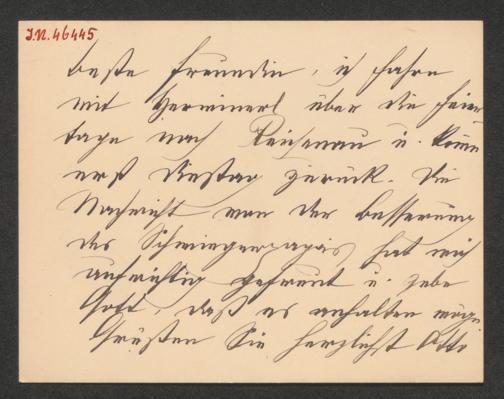 J.N. 46445
beste Freundin, ich fahre
mit Herminerl über die Feier
tage nach Reichenau u. komme
erst Diestag zurück. Die
Nachricht von der Besserung
des Schwiegerpapas hat mich
aufrichtig gefreut u. gebe
Gott, daß es anhalten möge
Grüßen Sie herzlichst Otto